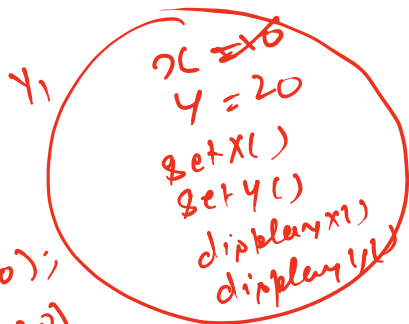 Y1
x = 10
y = 20
setX()
setY()
displayX()
displayY()
0);
0)